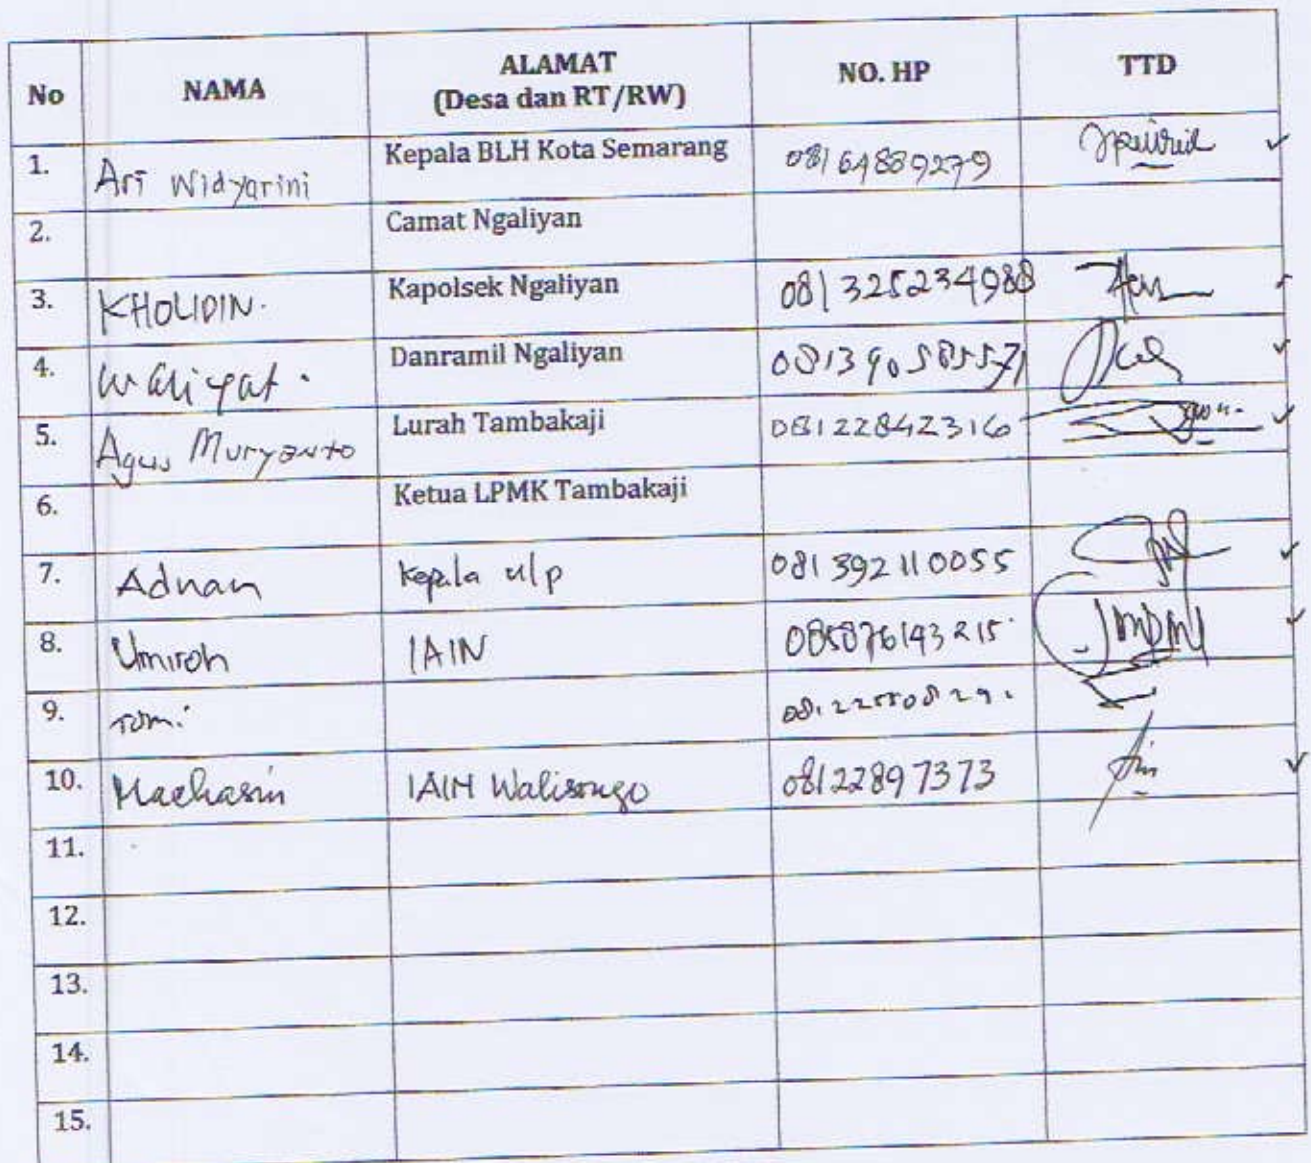 No NAMA ALAMAT NO. HP TTD
(Desa dan RT/RW)
1. Ari Widyarini Kepala BLH Kota Semarang 08164889279
2. Camat Ngaliyan
3. KHOLIDIN. Kapolsek Ngaliyan 081325234988
4. Waliyat. Danramil Ngaliyan 081390585571
5. Agus Muryanto Lurah Tambakaji 08122842316
6. Ketua LPMK Tambakaji
7. Adnan Kepala ulp 081392110055
8. Umiroh IAIN 085876143215
9. Tomi
10. Machasin IAIN Walisongo 08122897373
11.
12.
13.
14.
15.